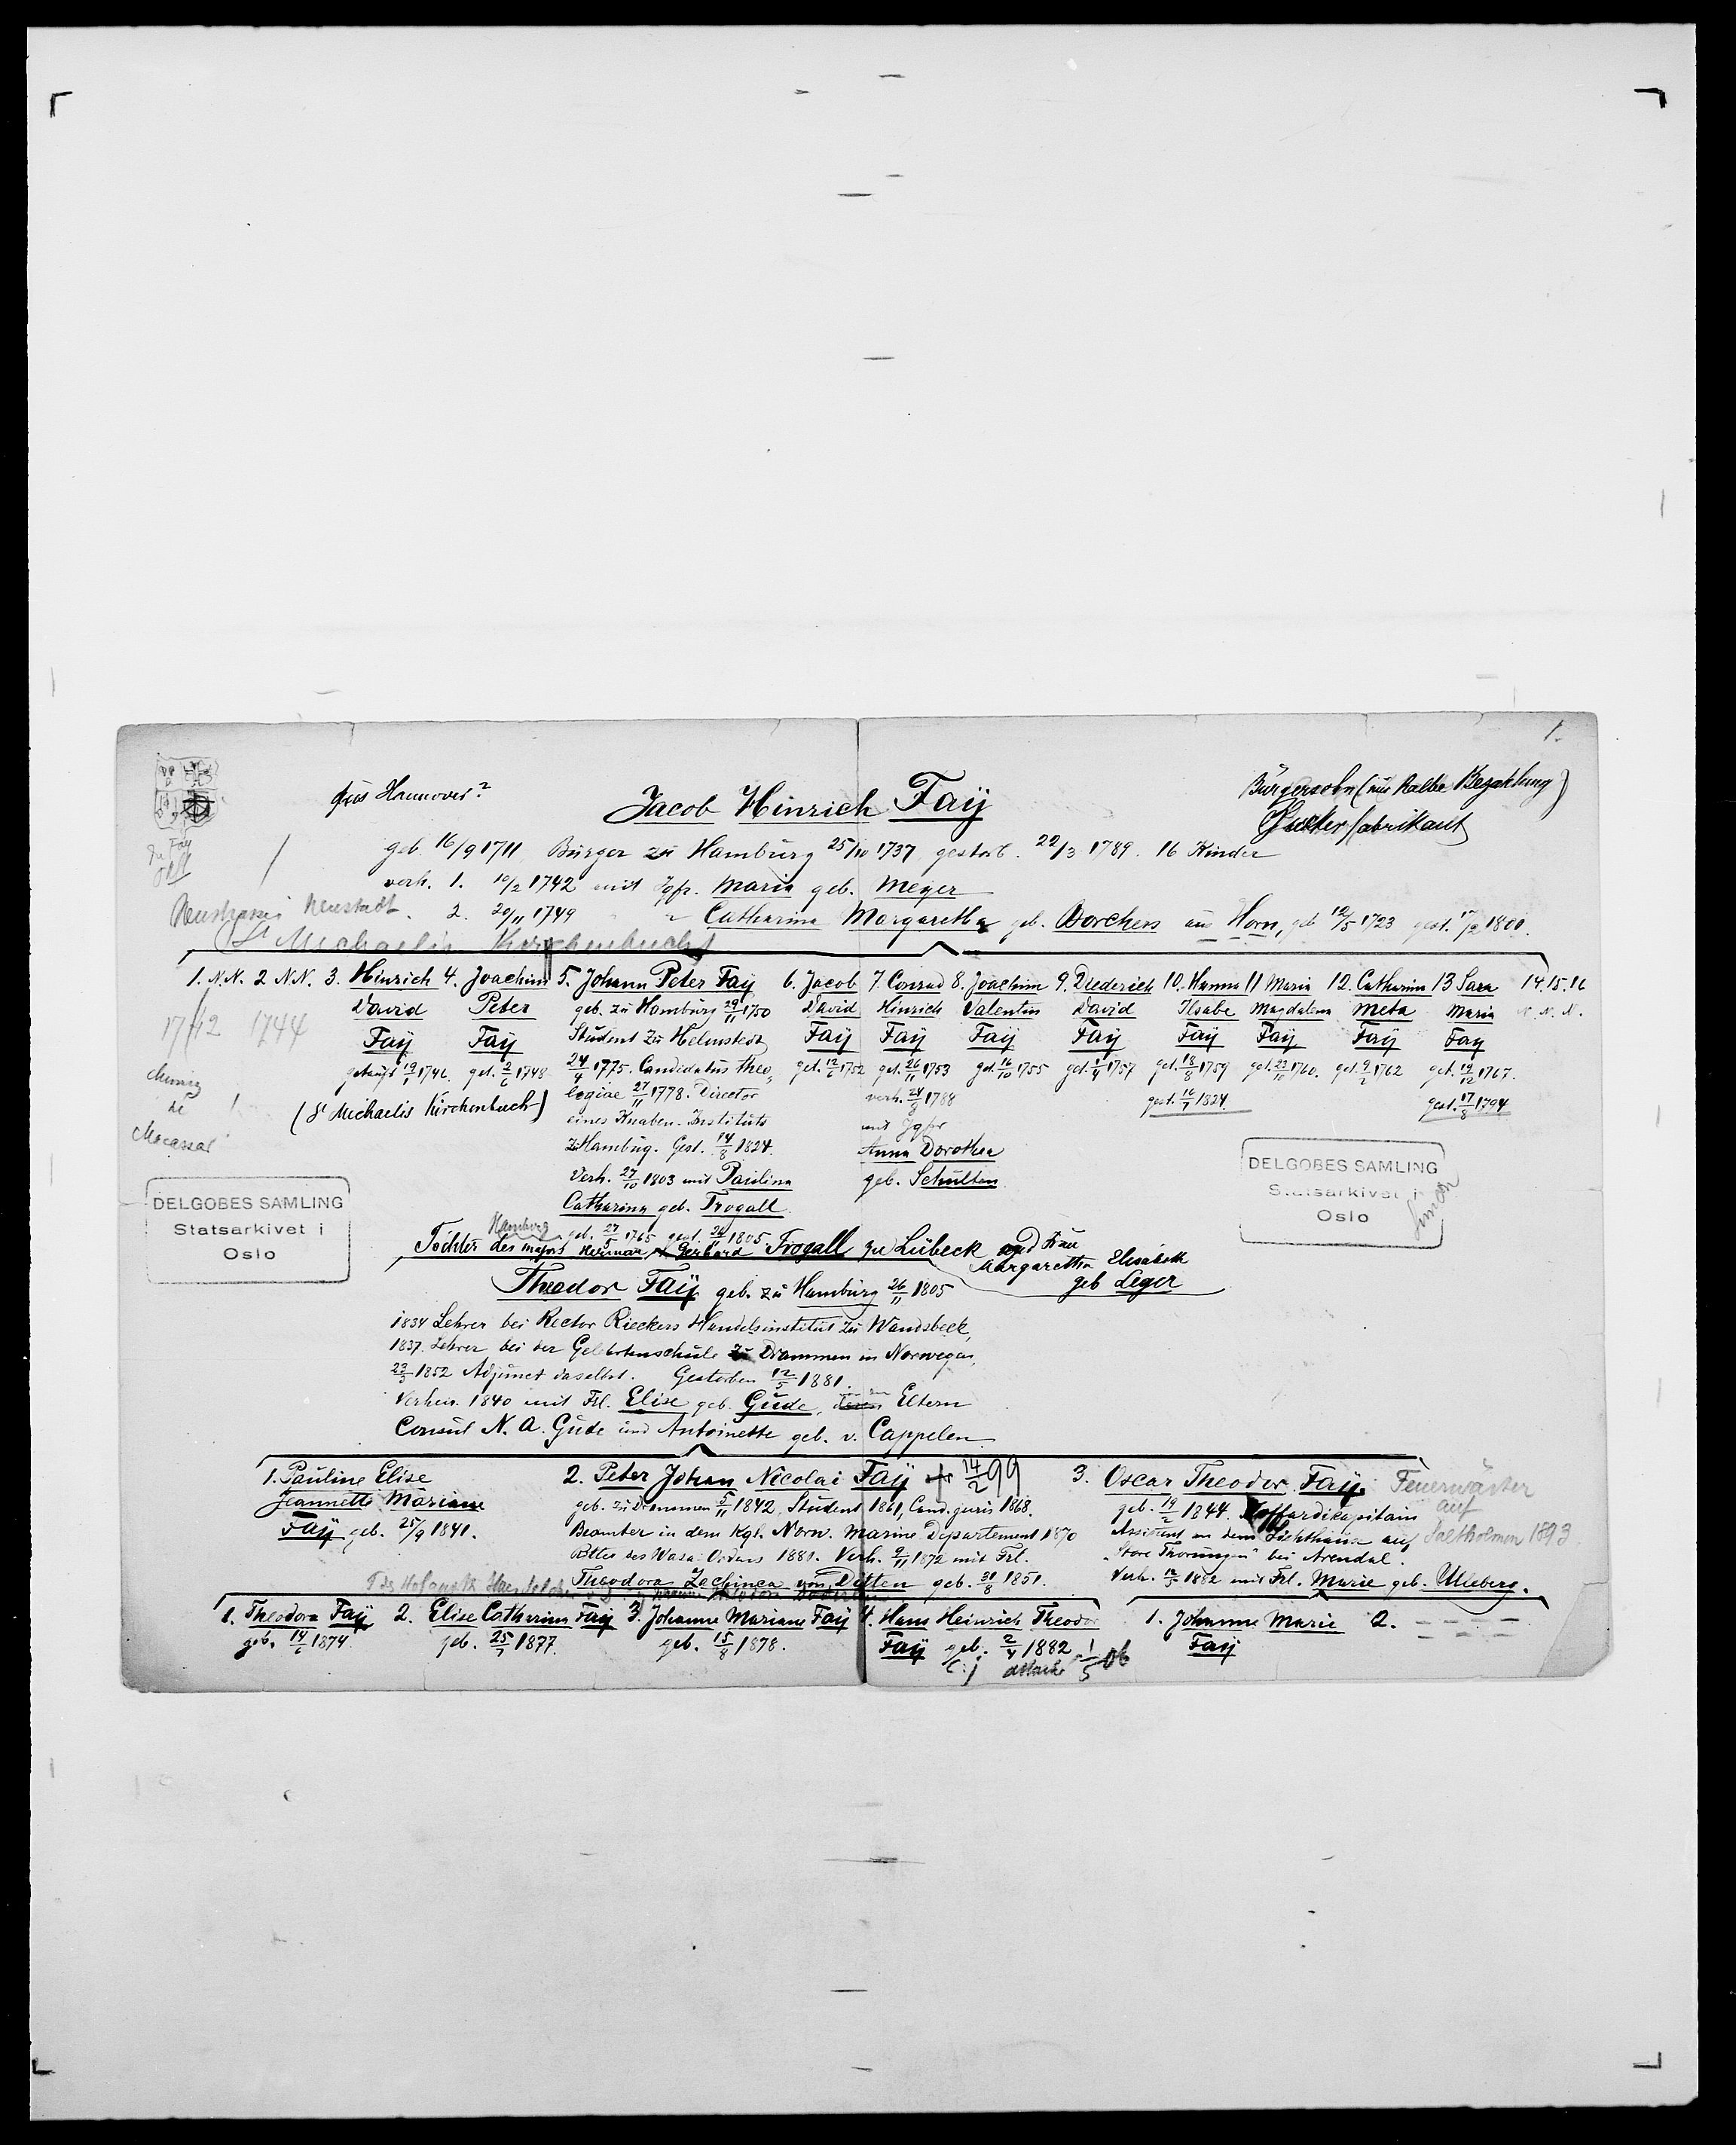 1.
aus Hannover?
Jacob Hinrich Faÿ
Bürgersohn (nur halbe Bezahlung)
Zuckerfabrikant
geb. 16/9 1711 Bürger zu Hamburg 25/10 1737 gestorb. 22/3 1789. 16 Kinder
verh. 1. 10/2 1742 mit Jgfr. Maria geb. Meyer
Neustadt. 2. 20/11 1749 " " Catharina Margaretha geb. Dorchers aus Horn, geb 12/5 1723 gest. 17/2 1800.
St Michaelis Kirchenbucht
1. N.N. 2 N.N. 3. Hinrich 4. Joachim 5. Johann Peter Faÿ 6. Jacob 7. Conrad 8. Joachim 9. Diederich 10. Hanna 11 Maria 12. Catharina 13 Sara 14. 15. 16
David Peter geb. zu Hamburg 29/11 1750 David Hinrich Valentin David Ilsabe Magdalena Meta Maria N. N. N.
1742 1744
Faÿ Faÿ Student zu Helmstedt Faÿ Faÿ Faÿ Faÿ Faÿ Faÿ Faÿ Faÿ
getauft 19/1 1746. get. 2/6 1748 24/4 1775. Candidatus theo= get. 12/6 1752 get. 26/11 1753 get. 16/10 1755 get. 1/4 1757 get. 18/8 1759 get. 23/10 1760. get. 9/2 1762 get. 19/12 1767.
(St Michaelis Kirchenbuch) logiae 27/11 1778. Director verh. 24/8 1788 gest. 16/7 1824. gest. 17/8 1794
eines Knaben-Instituts mit Jgfr
zu Hamburg. Gest. 14/8 1824. Anna Dorothea
Verh. 27/10 1803 mit Paulina geb. Schulten
Catharina geb. Trogall
de
Macassar
DELGOBES SAMLING
Statsarkivet i
Oslo
DELGOBES SAMLING
Statsarkivet i
Oslo
Hamburg geb. 27/5 1765 gest. 26/11 1805
Tochter des Majors Herman Gerhard Trogall zu Lübeck und Frau
Margaretha Elisabeth
geb Leger
Theodor Faÿ geb. zu Hamburg 26/11 1805
1834 Lehrer bei Rector Rieckers Handelsinstitut zu Wandsbeck,
1837. Lehrer bei der Gelehrtenschule zu Drammen in Norwegen,
23/3 1852 Adjunct daselbst. Gestorben 12/5 1881.
Verheir. 1840 mit Frl. Elise geb. Gude, deren Eltern
Consul N. A. Gude und Antoinette geb. v. Cappelen
1. Pauline Elise
Jeannette Mariane
Faÿ geb. 25/9 1841.
2. Peter Johan Nicolai Faÿ + 14/2 99
geb. zu Drammen 5/11 1842, Student 1861, Cand. juris 1868.
Beamter in dem Kgl. Norw. Marine Departement 1870
Ritter des Wasa-Ordens 1881. Verh. 9/11 1872 mit Frl.
Theodora Zechinea von Ditten geb. 30/8 1851.
3. Oscar Theodor Faÿ. Feuerwärter
auf
Saltholmen 1893
geb. 19/2 1844. Koffardikapitain
Assistent an dem Lichthause auf
"Store Thorungen" bei Arendal.
Verh. 12/5 1882 mit Frl. Marie geb. Ulleberg.
1. Theodora Faÿ 2. Elise Catharina Faÿ 3. Johanne Mariane Faÿ 4. Hans Heinrich Theodor
geb. 14/6 1874 geb. 25/7 1877. geb. 15/8 1878. Faÿ geb. 2/4 1882
attaché 1/5 06
1. Johanne Marie 2.
Faÿ